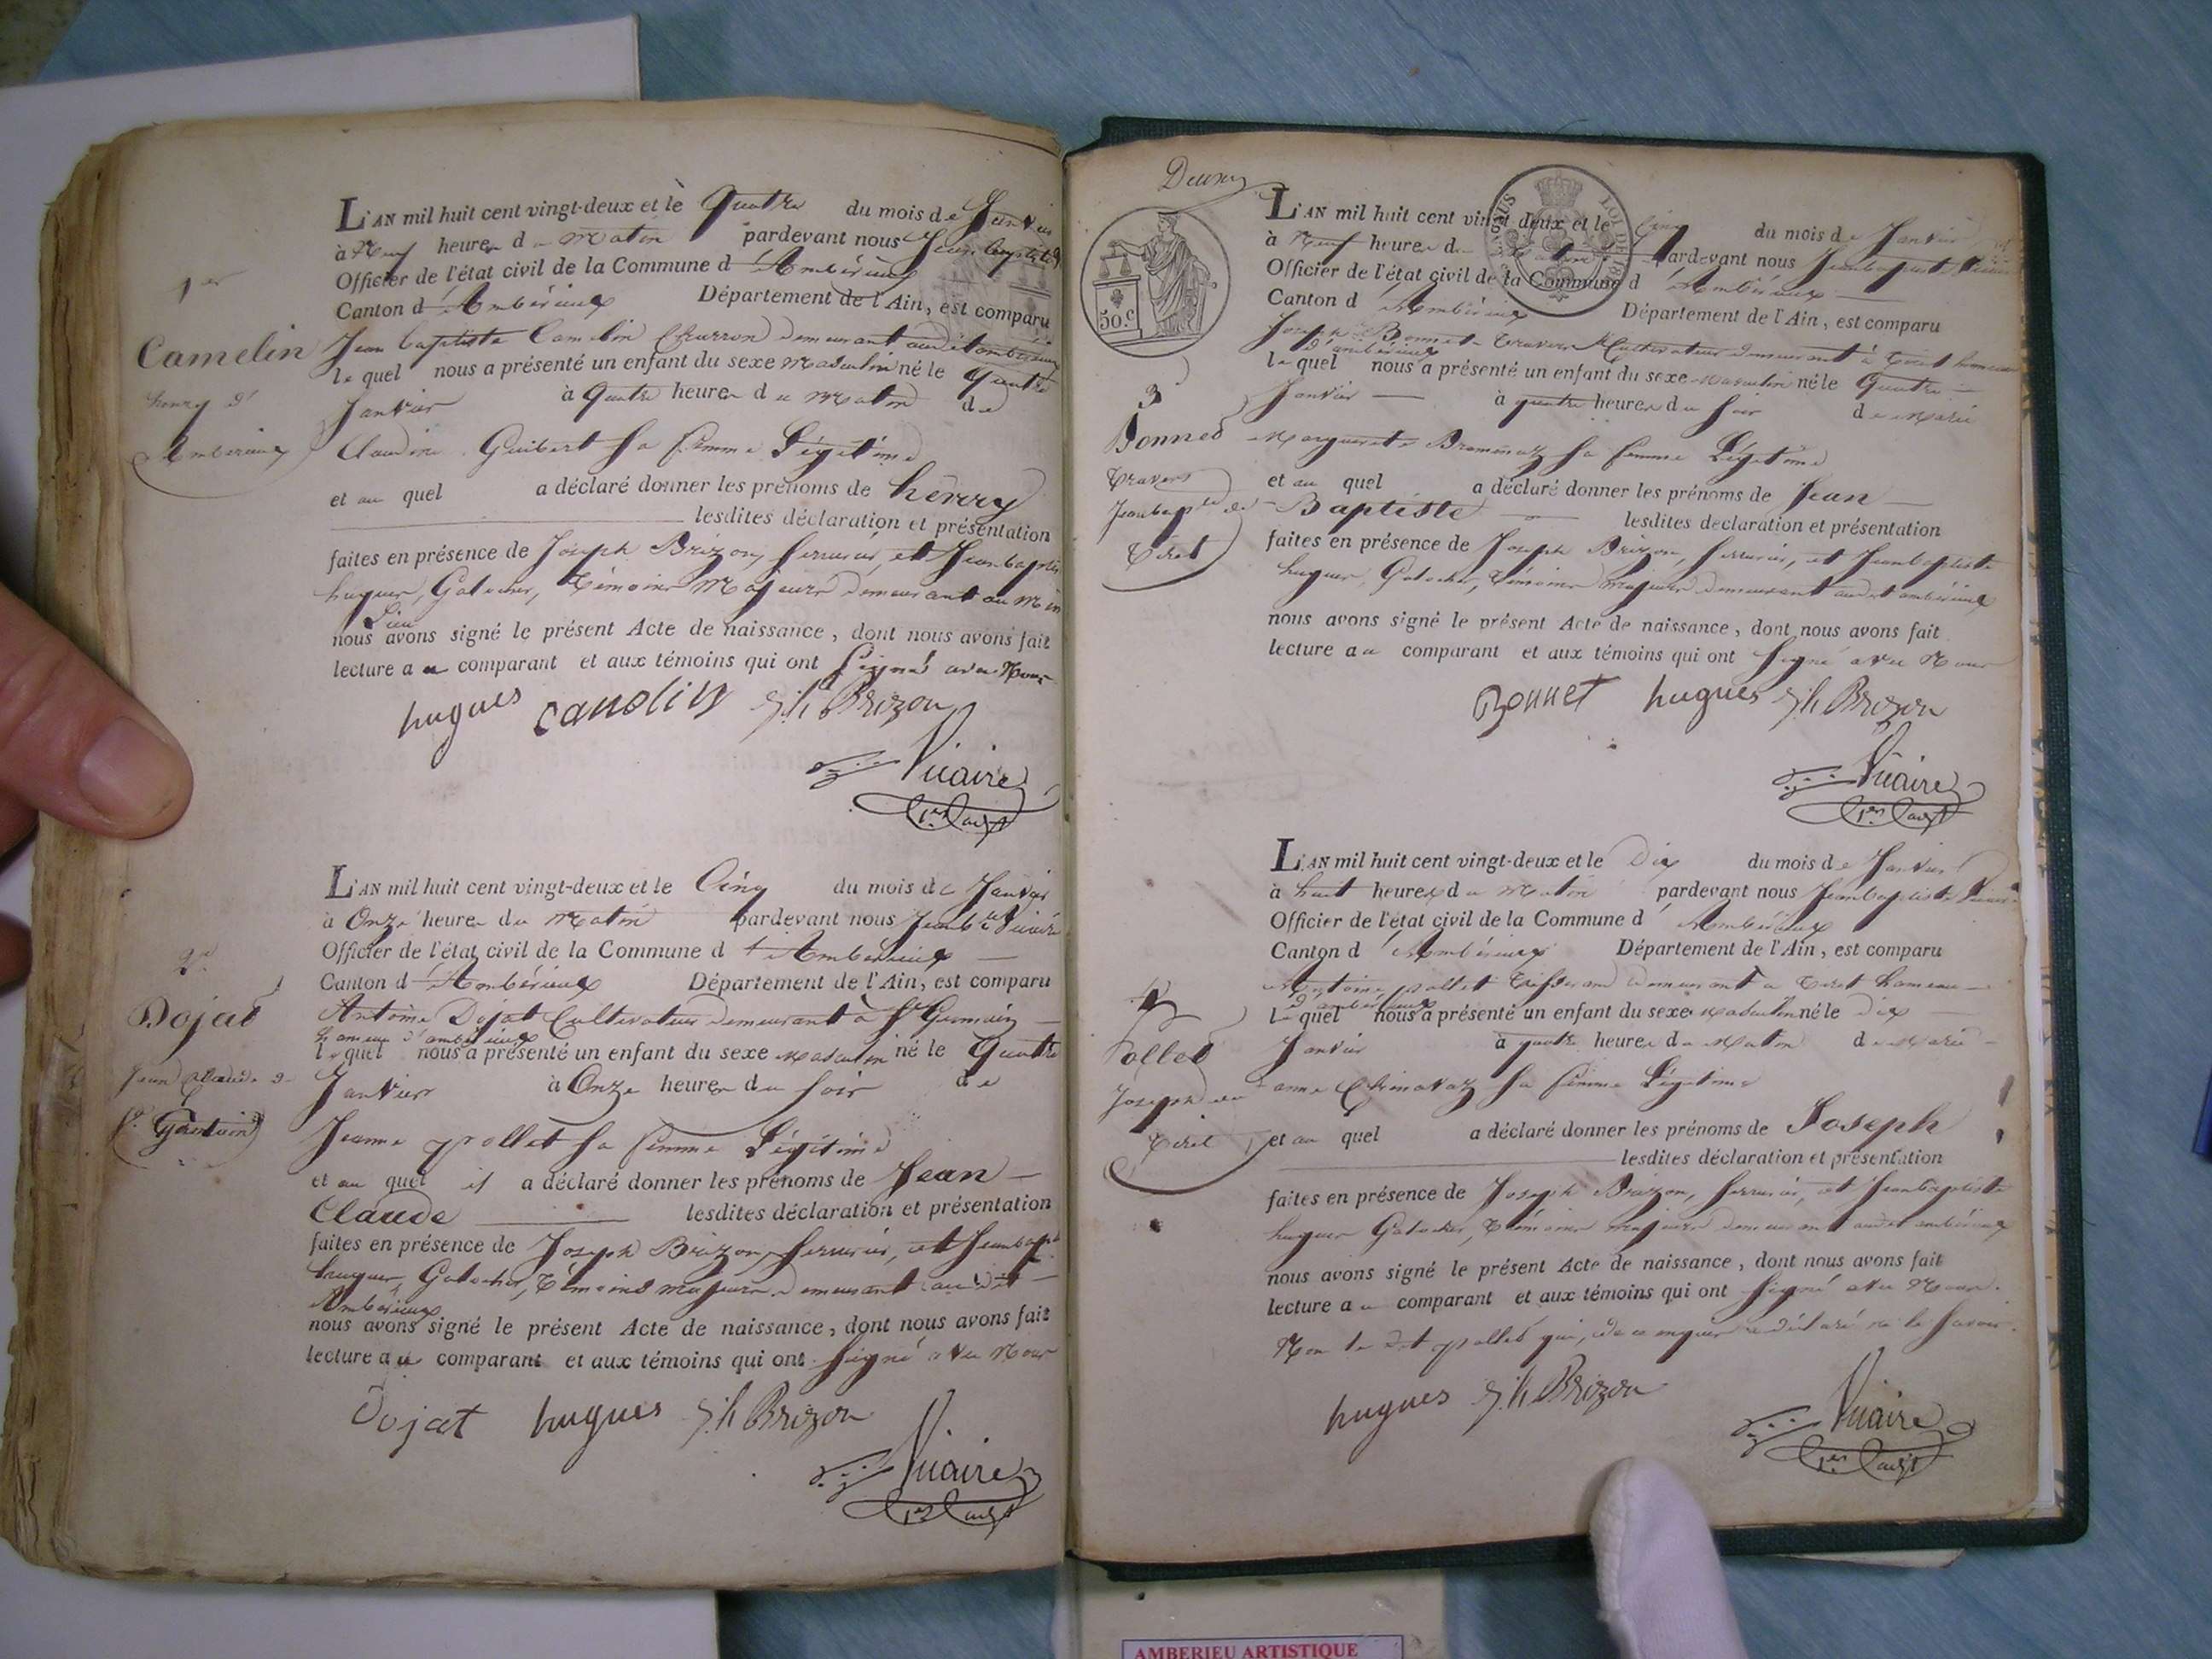 1er
Camelin
henry d'
Ambérieux
L'AN mil huit cent vingt-deux et le Quatre du mois de Janvier
à Neuf heures du Matin pardevant nous Jean baptiste
Officier de l'état civil de la Commune d'Ambérieux
Canton d'Ambérieux Département de l'Ain, est comparu
Jean baptiste Camelin Charron demeurant audit ambérieux
lequel nous a présenté un enfant du sexe Masculin né le Quatre
Janvier à Quatre heures du Matin de
Claudine Guibert Sa femme Légitime
et au quel a déclaré donner les prénoms de henry
lesdites déclaration et présentation
faites en présence de Joseph Brizon, Serrurier, et Jean baptiste
hugues, Galocher, Témoins Majeurs demeurant au Même
Lieu
nous avons signé le présent Acte de naissance, dont nous avons fait
lecture au comparant et aux témoins qui ont Signé avec Nous
hugues camelin Jh Brizon
Vicaire
1er adjt
2e
Dojat
Jean Claude de
St Germain
L'AN mil huit cent vingt-deux et le Cinq du mois de Janvier
à Onze heures du Matin pardevant nous Jean bte Vicaire
Officier de l'état civil de la Commune d'Ambérieux
Canton d'Ambérieux Département de l'Ain, est comparu
Antoine Dojat Cultivateur demeurant à St Germain
hameau d'ambérieux
lequel nous a présenté un enfant du sexe Masculin né le Quatre
Janvier à Onze heures du Soir de
Jeanne pollet Sa femme Légitime
et au quel il a déclaré donner les prénoms de Jean
Claude lesdites déclaration et présentation
faites en présence de Joseph Brizon, Serrurier, et Jean bapte
hugues, Galocher, Témoins majeurs demeurant audit
Ambérieux
nous avons signé le présent Acte de naissance, dont nous avons fait
lecture au comparant et aux témoins qui ont Signé avec Nous
Dojat hugues Jh Brizon
Vicaire
1er adjt
Deux
50.c
LOI DE 18
3
Bonnet
Travers
Jean bapte de
Tiret
L'AN mil huit cent vingt-deux et le Cinq du mois de Janvier
à Neuf heures du Matin pardevant nous Jean baptiste Vicaire
Officier de l'état civil de la Commune d'Ambérieux
Canton d'Ambérieux Département de l'Ain, est comparu
Joseph Bonnet Travers Cultivateur demeurant à Tiret hameau
d'ambérieux
lequel nous a présenté un enfant du sexe Masculin né le Quatre
Janvier à quatre heures du Soir de Marie
Marguerite Sa femme Légitime
et au quel a déclaré donner les prénoms de Jean
Baptiste lesdites declaration et présentation
faites en présence de Joseph Brizon, Serrurier, et Jean baptiste
hugues, Galocher, témoins majeurs demeurant audit ambérieux
nous avons signé le présent Acte de naissance, dont nous avons fait
lecture au comparant et aux témoins qui ont Signé avec Nous
Bonnet hugues Jh Brizon
Vicaire
1er adjt
4
Pollet
Joseph de
Tiret
L'AN mil huit cent vingt-deux et le Dix du mois de Janvier
à huit heures du Matin pardevant nous Jean baptiste Vicaire
Officier de l'état civil de la Commune d'Ambérieux
Canton d'Ambérieux Département de l'Ain, est comparu
Antoine pollet Tisserand demeurant à Tiret hameau
d'ambérieux
lequel nous a présenté un enfant du sexe Masculin né le dix
Janvier à quatre heures du Matin de Marie
anne Sa femme Légitime
et au quel a déclaré donner les prénoms de Joseph
lesdites déclaration et présentation
faites en présence de Joseph Brizon, Serrurier, et Jean baptiste
hugues Galocher, Témoins majeurs demeurant audit ambérieux
nous avons signé le présent Acte de naissance, dont nous avons fait
lecture au comparant et aux témoins qui ont Signé avec Nous.
Non le dit pollet qui, de ce enquis a déclaré ne le Savoir.
hugues Jh Brizon
Vicaire
1er adjt
AMBERIEU ARTISTIQUE